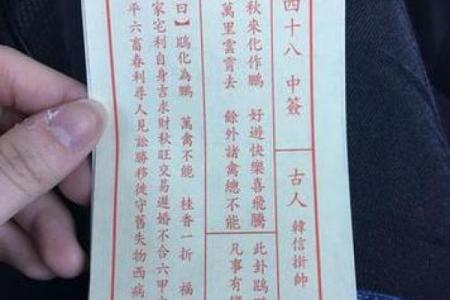 四十八 中簽
古人 韓信掛帥
秋來化作鵬 好遊快樂喜飛騰
萬里雲霄去 餘外諸禽總不能
此卦鷗
凡事有
曰】鷗化為鵬 萬禽不能 桂香一折 福
家宅利自身吉求財秋旺交易遲婚不合六甲
平六畜春利尋人見訟勝移徙守舊失物西病